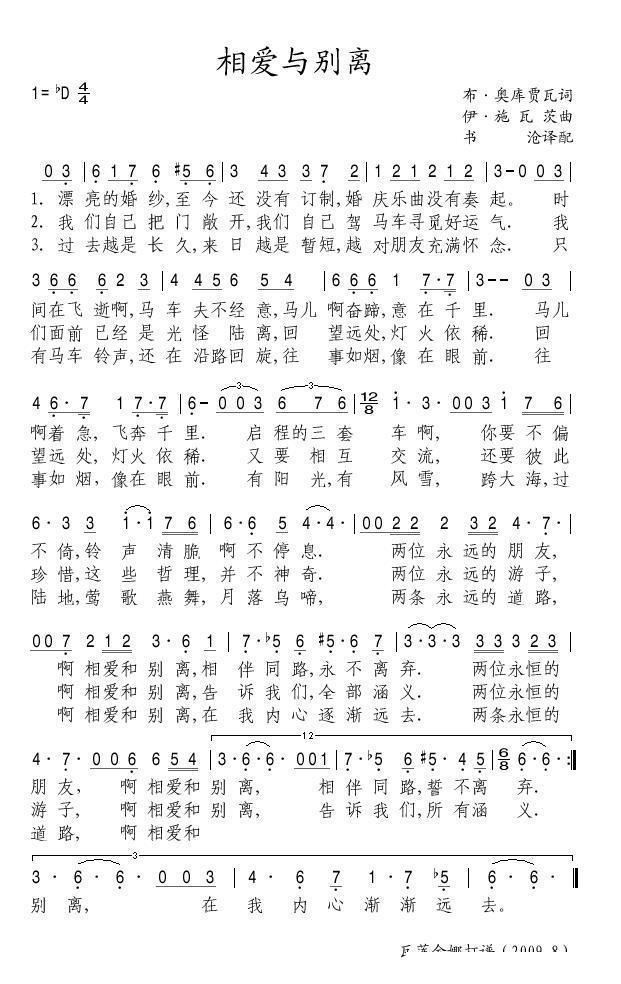 相爱与别离
1=♭D 4/4
布·奥库贾瓦词
伊·施瓦茨曲
书 沧译配
0 3 | 6 1 7 6 #5 6 | 3 4 3 3 7 3 7 | 2 1 2 1 2 1 2 | 3 - 0 0 3 |
1. 漂亮的婚纱,至今还没有订制,婚庆乐曲没有奏起。时
2. 我们自己把门敞开,我们自己驾马车寻觅好运气.我
3. 过去越是长久,来日越是暂短,越对朋友充满怀念.只
3 6 6 6 2 3 | 4 4 5 6 5 4 | 6 6 6 1 7·7 | 3 - - 0 3 |
间在飞逝啊,马车夫不经意,马儿啊奋蹄,意在千里.马儿
们面前已经是光怪陆离,回望远处,灯火依稀.回
有马车铃声,还在沿路回旋,往事如烟,像在眼前.往
4 6·7 1 7·7 | 6 - 0 0 3 6 7 6 | 12/8 1·3·0 0 3 1 7 6 |
啊着急,飞奔千里.启程的三套车啊,你要不偏
望远处,灯火依稀.又要相互交流,还要彼此
事如烟,像在眼前.有阳光,有风雪,跨大海,过
6·3 3 1·1 7 6 | 6·6 5 4·4· | 0 0 2 2 2 3 2 4·7· |
不倚,铃声清脆啊不停息.两位永远的朋友,
珍惜,这些哲理,并不神奇.两位永远的游子,
陆地,莺歌燕舞,月落乌啼,两条永远的道路,
0 0 7 2 1 2 3·6 1 | 7·♭5 6 #5·6 7 | 3·3·3 3 3 3 2 3 |
啊相爱和别离,相伴同路,永不离弃.两位永恒的
啊相爱和别离,告诉我们,全部涵义.两位永恒的
啊相爱和别离,在我内心逐渐远去.两条永恒的
12
4·7·0 0 6 6 5 4 | 3·6·6·0 0 1 | 7·♭5 6 #5·4 5 | 6/8 6·6· :‖
朋友,啊相爱和别离,相伴同路,誓不离弃.
游子,啊相爱和别离,告诉我们,所有涵义.
道路,啊相爱和
3
3·6·6·0 0 3 | 4·6 7 1·7 ♭5 | 6·6· ‖
别离,在我内心渐渐远去。
(2009.8)